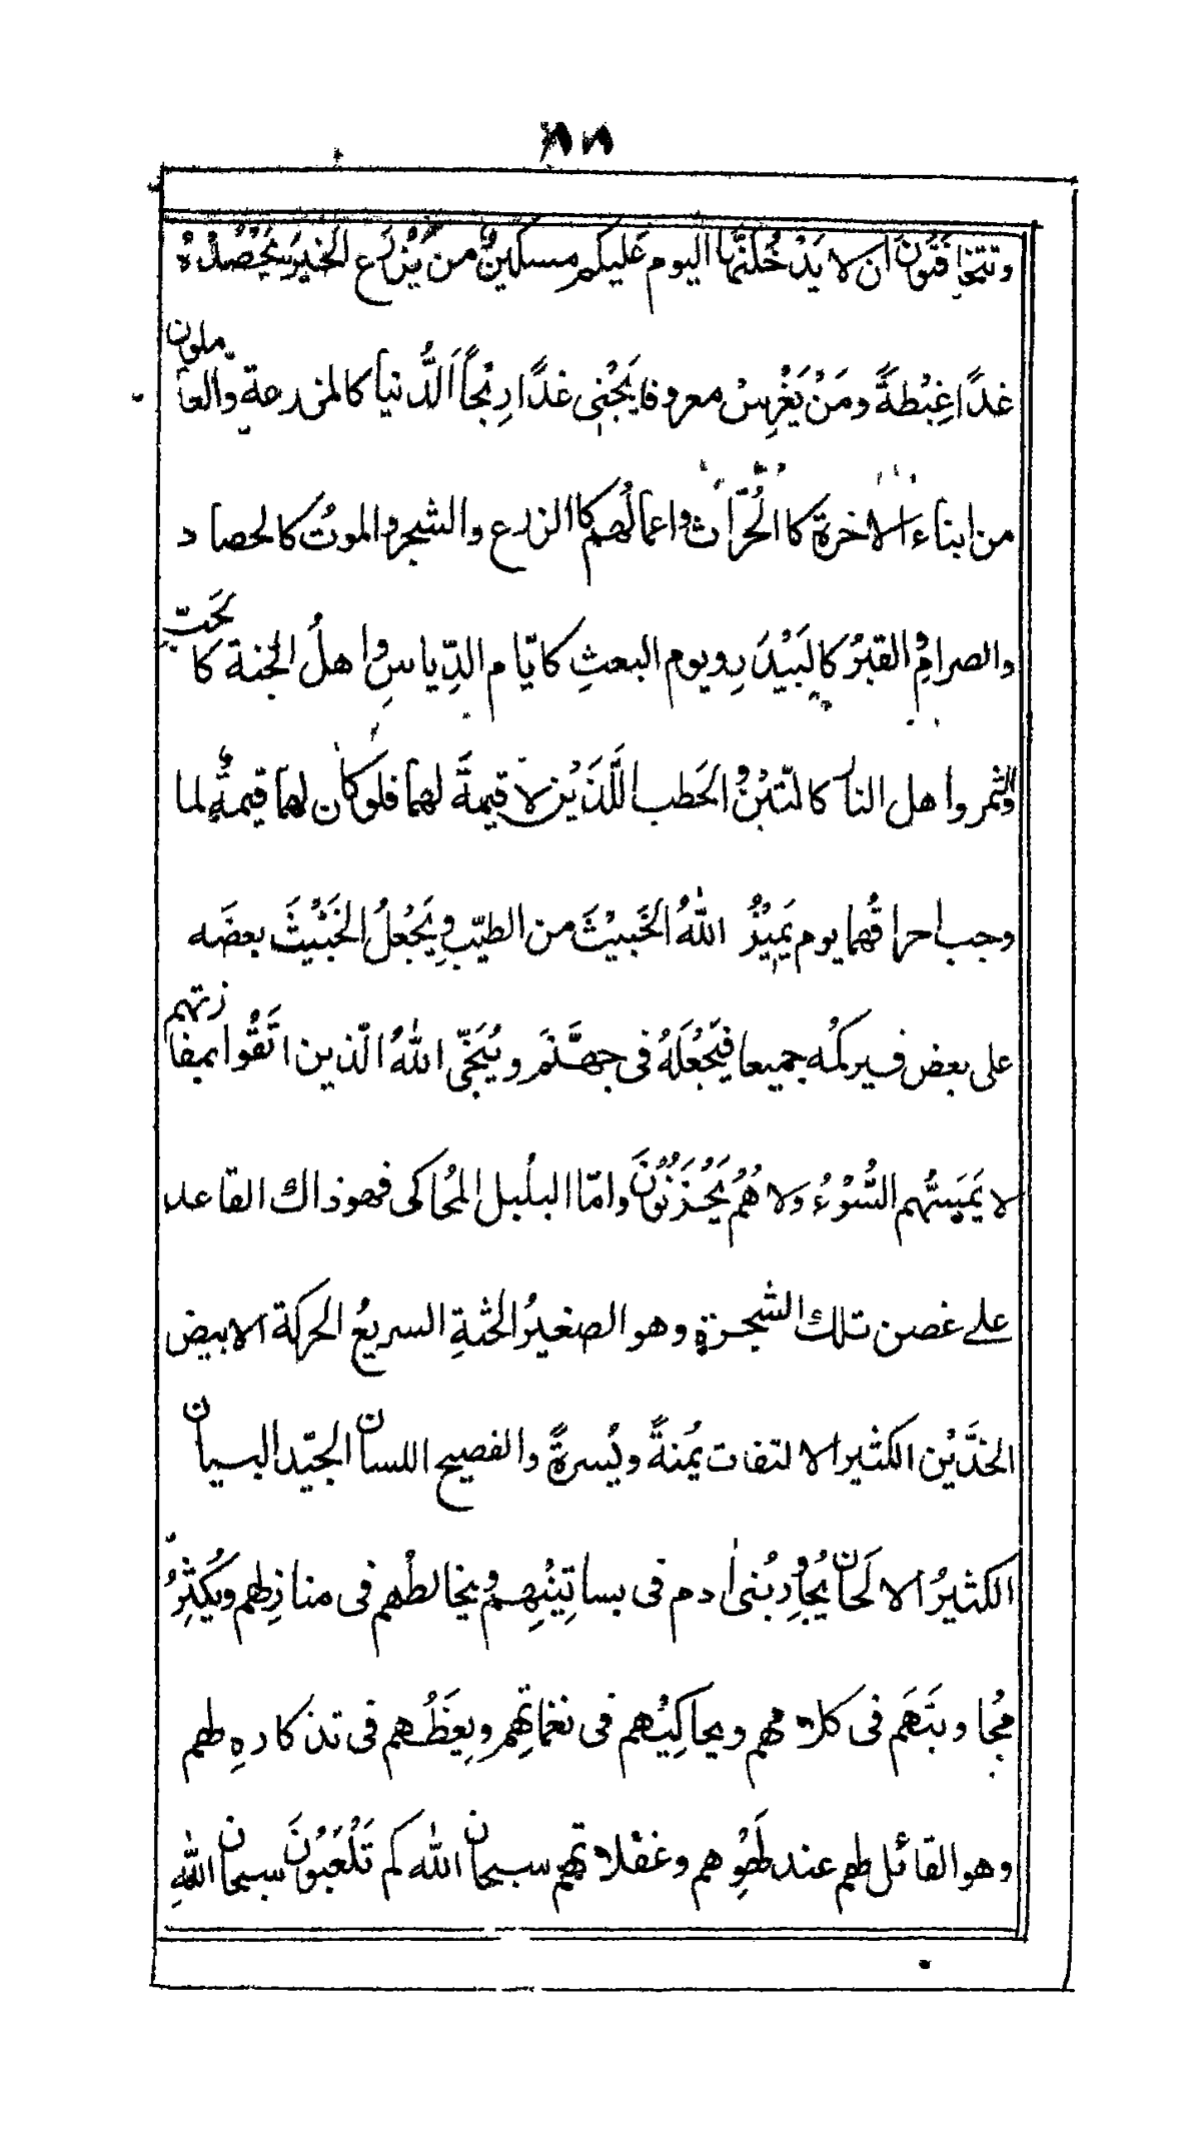 وتتخافتون ان لا يَدْخُلَنَّها اليوم عَليكم مسكينٌ من يَزْرَع الخيرَ يَحْصُدْهُ
غدًا غِبْطةً ومَنْ يَغْرِسْ معروفا يَجْنى غدًا رِبْحاً اَلدُّنيا كالمزرعة والعاملون
من ابناء الاخرة كالحُرّاث واعمالُهم كالزرع والشجر والموتُ كالحصاد
والصرامِ والقبرُ كالبَيْدَرِ ويوم البعثِ كايّام الدِّياسِ واهلُ الجنة كالحَبّ
والثمر واهل النار كالتّبْنِ والحَطب اللَّذَيْن لا قيمةَ لهما فلو كان لهما قيمةٌ لما
وجب احراقُهما يوم يَمِيْزُ اللهُ الخَبيْثَ من الطيّب ويَجْعلُ الخَبَيْثَ بعضَه
على بعض فيركمُه جميعا فيَجْعَلَهُ فى جهنَّمَ ويُنَجّى اللهُ الّذين اتَّقُوا بمفازتهم
لا يَمَسُّهم السُّوْءُ ولا هُمْ يَحْزَنُوْنَ وامّا البلُبل المُحاكى فهو ذاك القاعد
على غصن تلك الشجرة وهو الصغيرُ الجُثةِ السريعُ الحركة الابيض
الخدَّيْن الكثير الالتفات يُمنةً ويُسرةً والفصيح اللسان الجيّد البيان
الكثيرُ الالَحان يُجاوِرُ بُنى اٰدم فى بساتِيْنِهِم ويخالطُهم فى منازلهم ويُكثِرُ
مُجاوبتَهَم فى كلامهم ويحاكِيْهم فى نغماتِهم ويعِظُهم فى تذكاره لهم
وهو القائل لهم عند لَهْوِهم وغفلاتهم سبحان الله كم تَلْعَبُوْنَ سبحان اللهِ